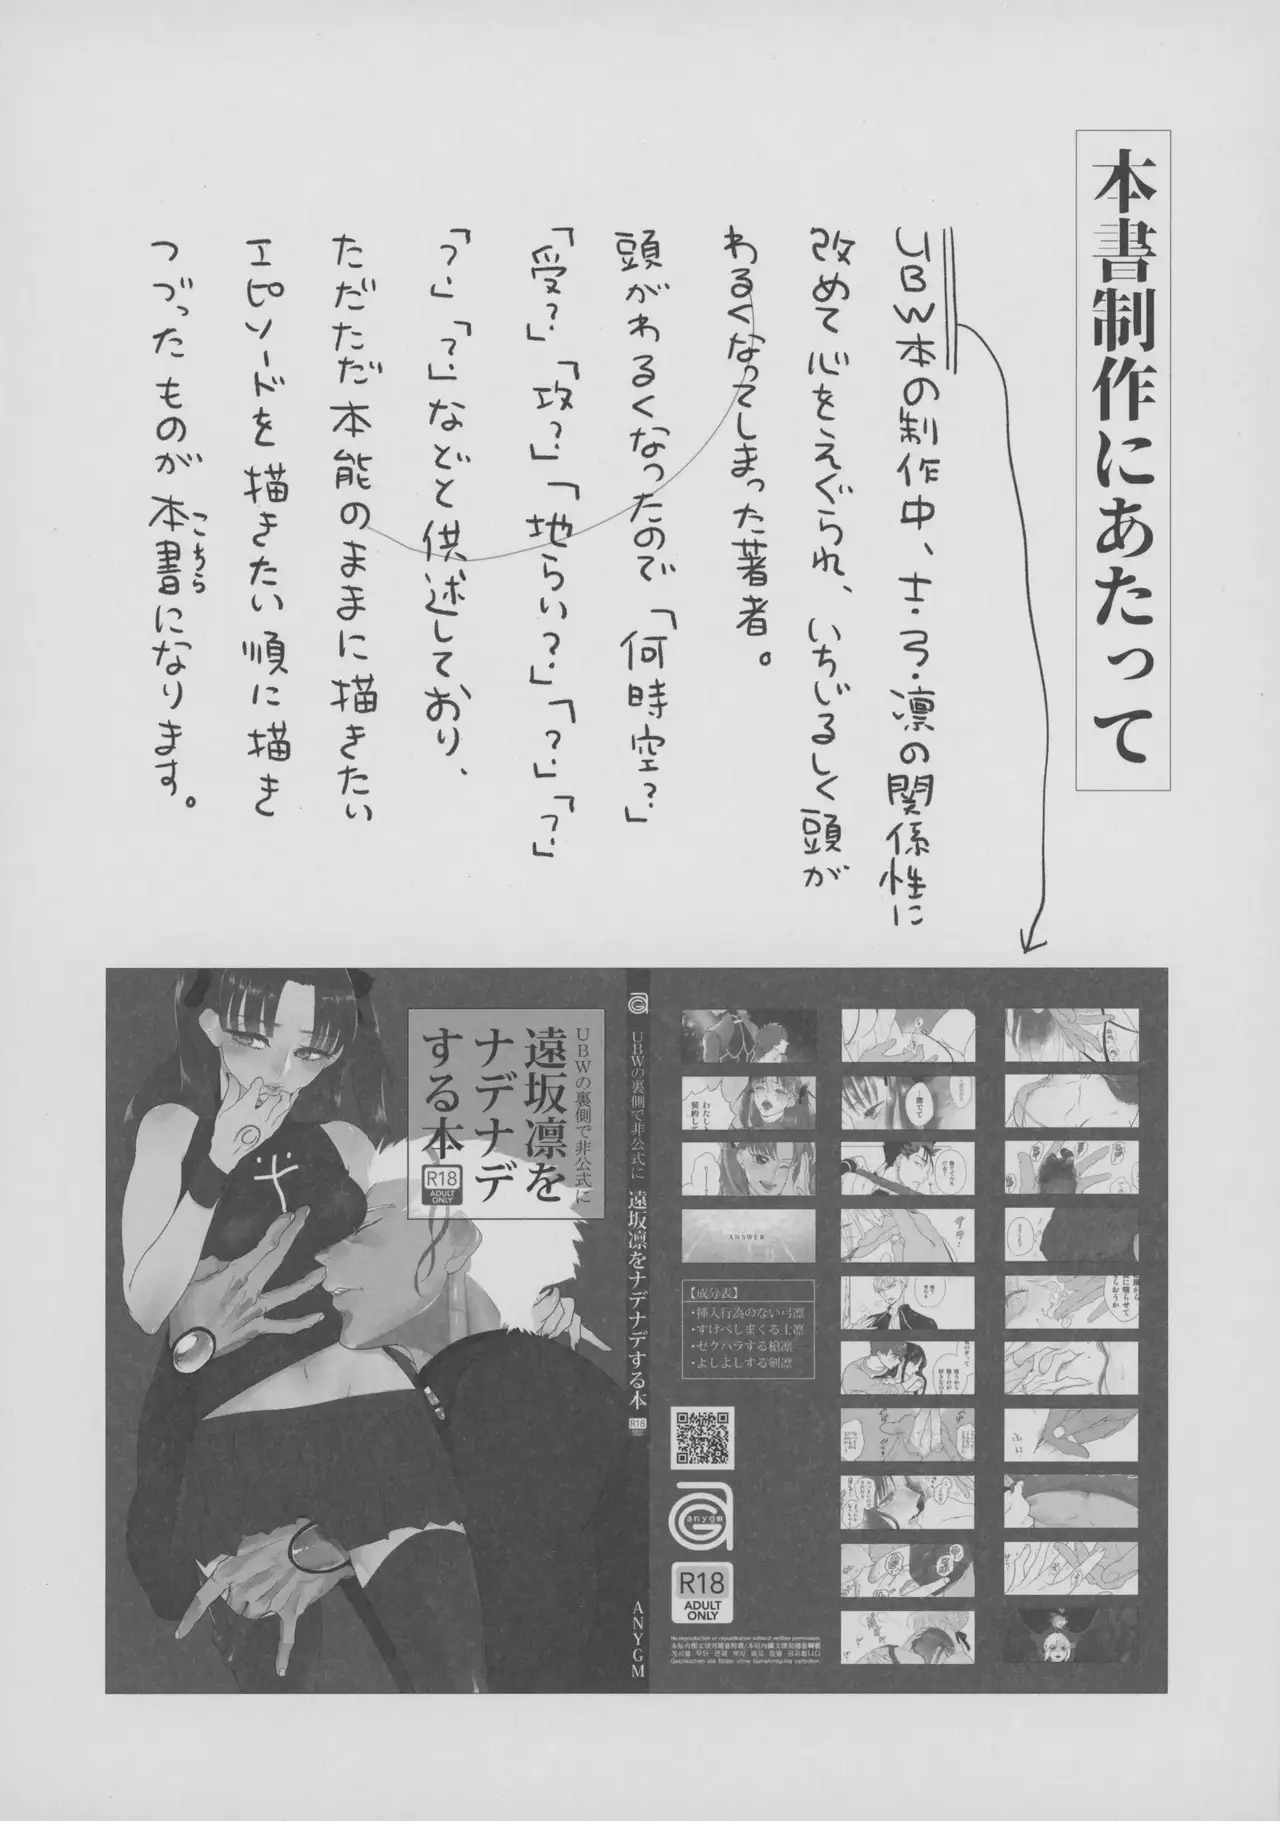 本書制作にあたって
UBW本の制作中、士・弓・凛の関係性に
改めて心をえぐられ、いちじるしく頭が
わるくなってしまった著者。
頭がわるくなったので「何時空?」
「受?」「攻?」「地らい?」「?」「?」
「?」「?」などと供述しており、
ただただ本能のままに描きたい
エピソードを描きたい順に描き
つづったものが本書になります。
こちら
UBWの裏側で非公式に
遠坂凛を
ナデナデ
する本
R18
ADULT
ONLY
UBWの裏側で非公式に 遠坂凛をナデナデする本
R18
ANYGM
わたしと
契約して
ANSWER
【成分表】
・挿入行為のない弓凛
・すけべしまくる士凛
・セクハラする槍凛
・よしよしする剣凛
anygm
R18
ADULT
ONLY
No reproduction or republication without written permission.